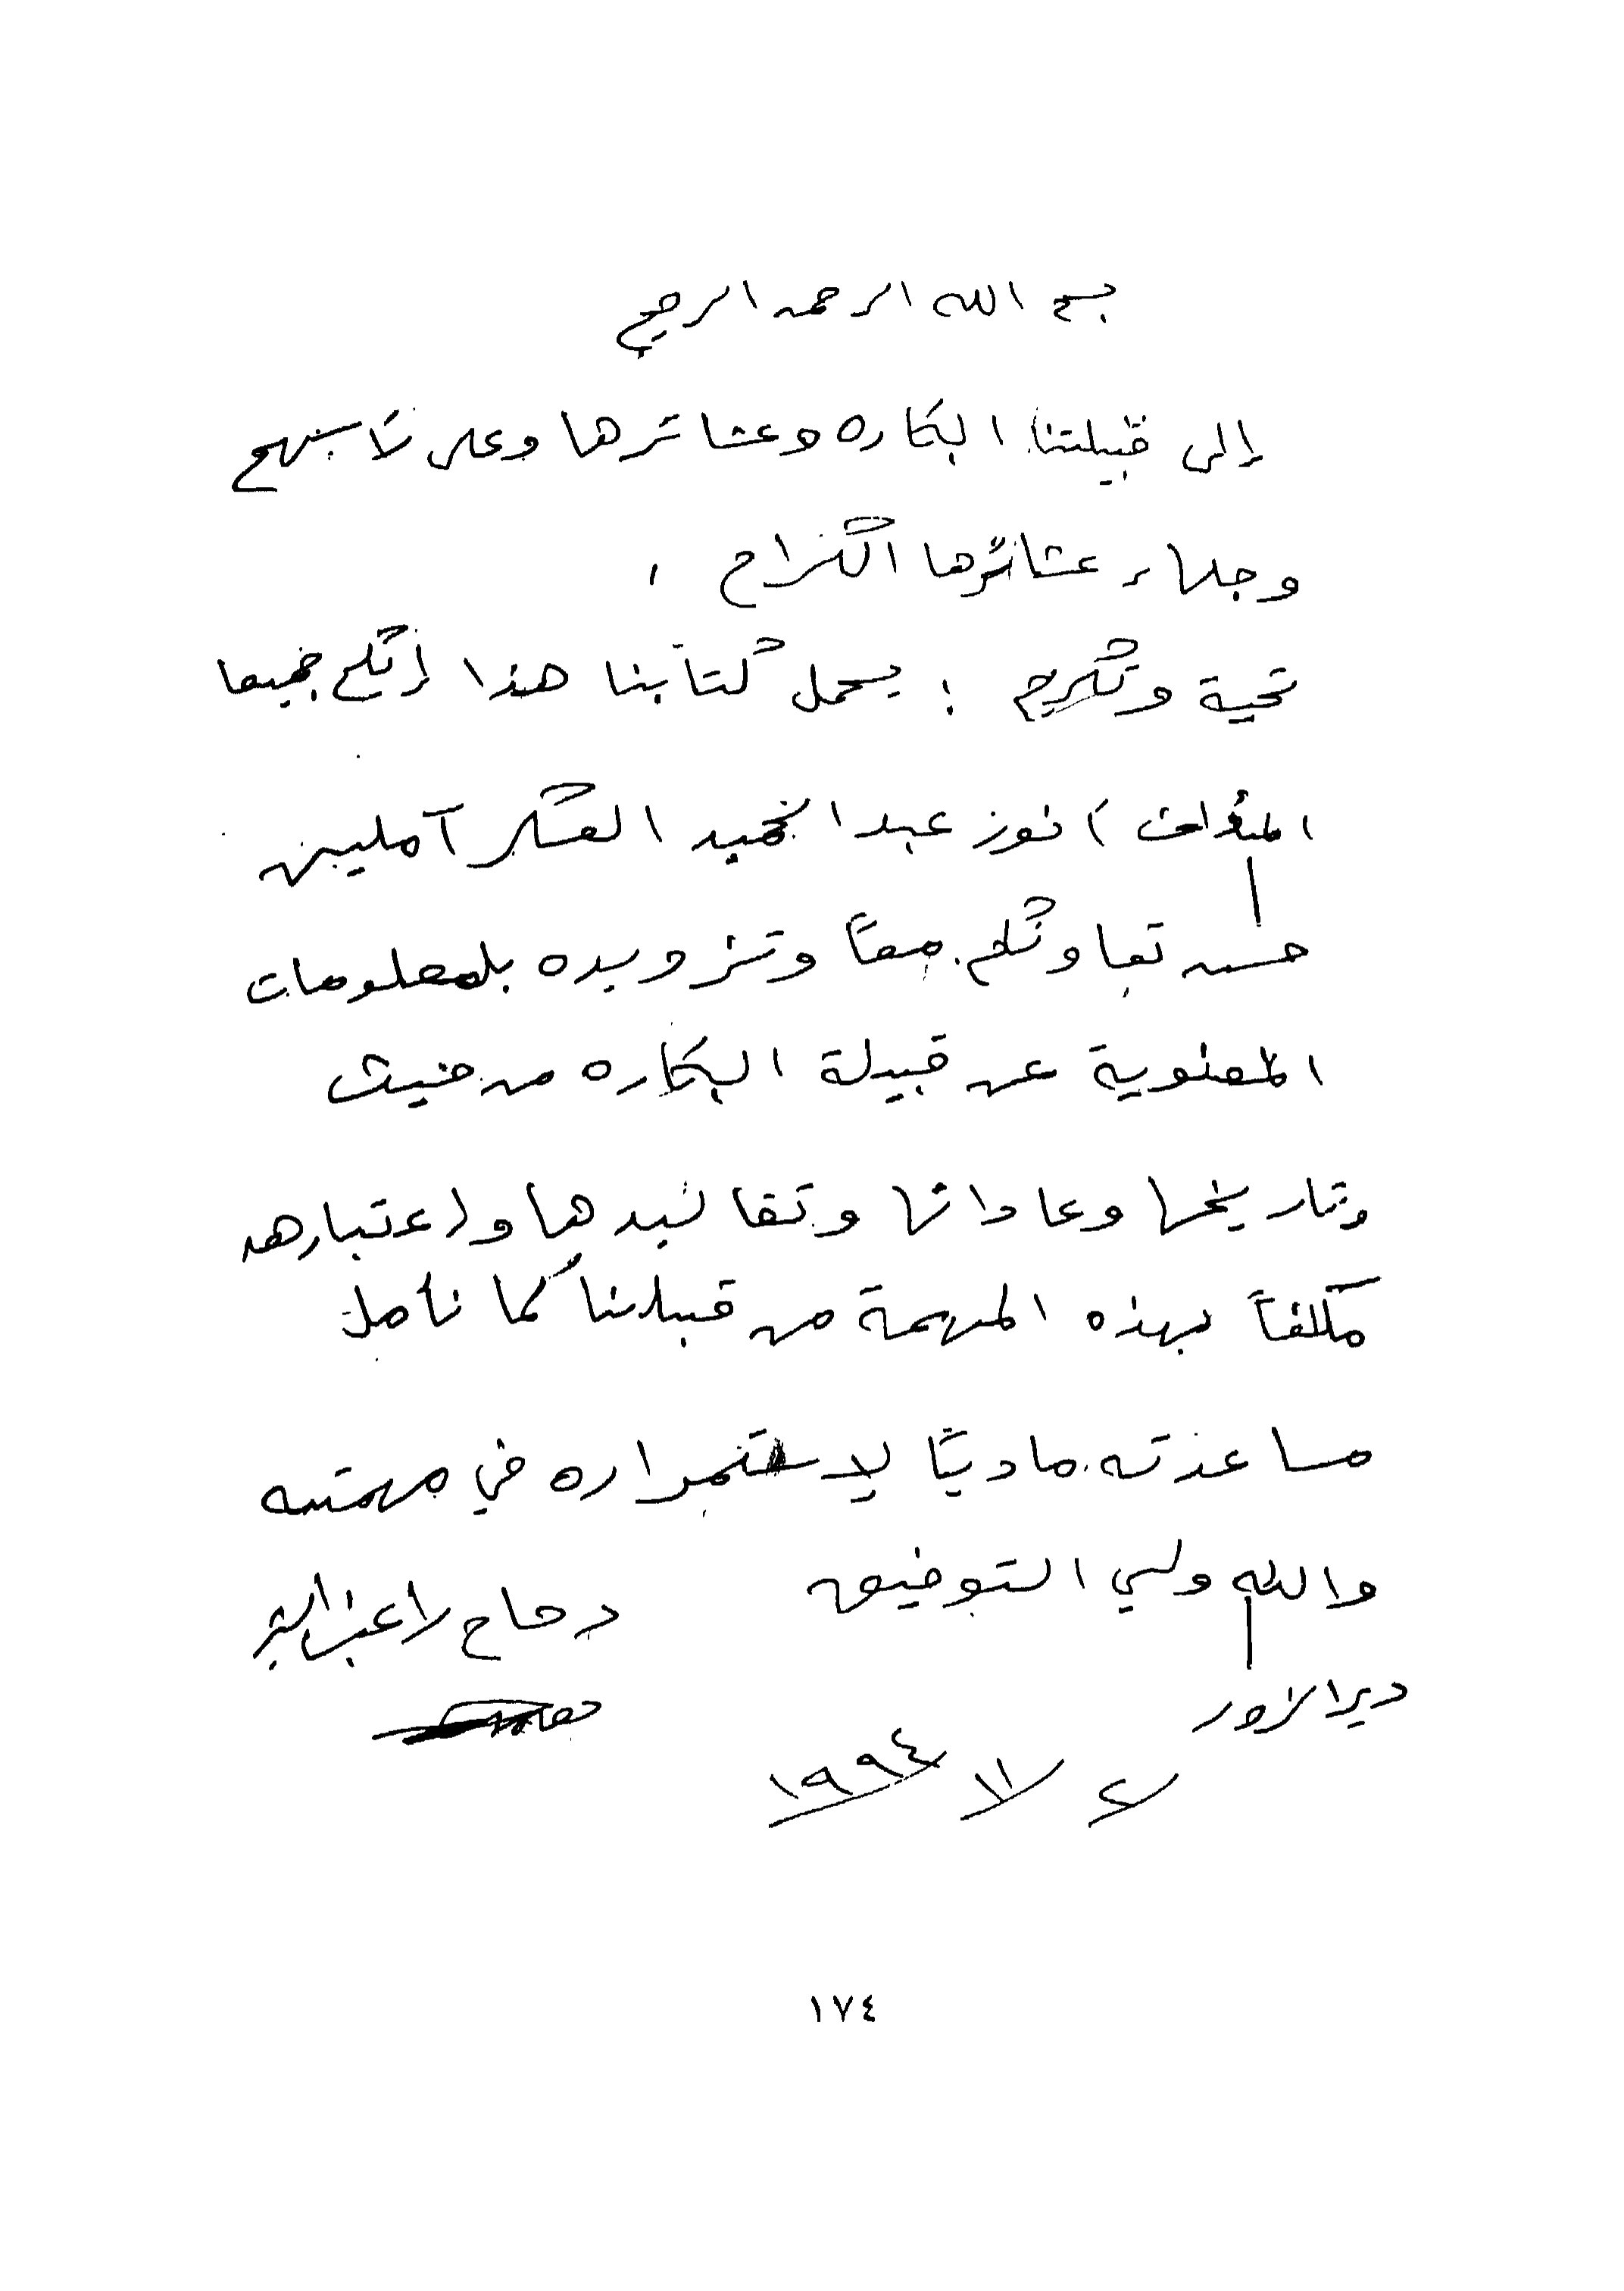 بسم الله الرحمن الرحيم
إلى قبيلتنا البكاره وعشائرها وعلى رأسهم
وجهاء عشائرها الكرام ،
تحية وتكريم ؛ يحمل كتابنا هذا إليكم جميعا
المؤلف / فوز عبد الحميد العسكر آملين
حسن تعاونكم معاً وتزويده بلمعلومات
المعنوية عن قبيلة البكاره من حيث
وتاريخها وعاداتها وتقاليدها واعتباره
مكلفاً بهذه المهمة من قبلنا كما نأمل
مساعدته مادياً لاستمراره في مهمته
والله ولي التوفيق
راغب البشير
دير الزور
٢ / ١١ / ١٩٩٤
١٧٤